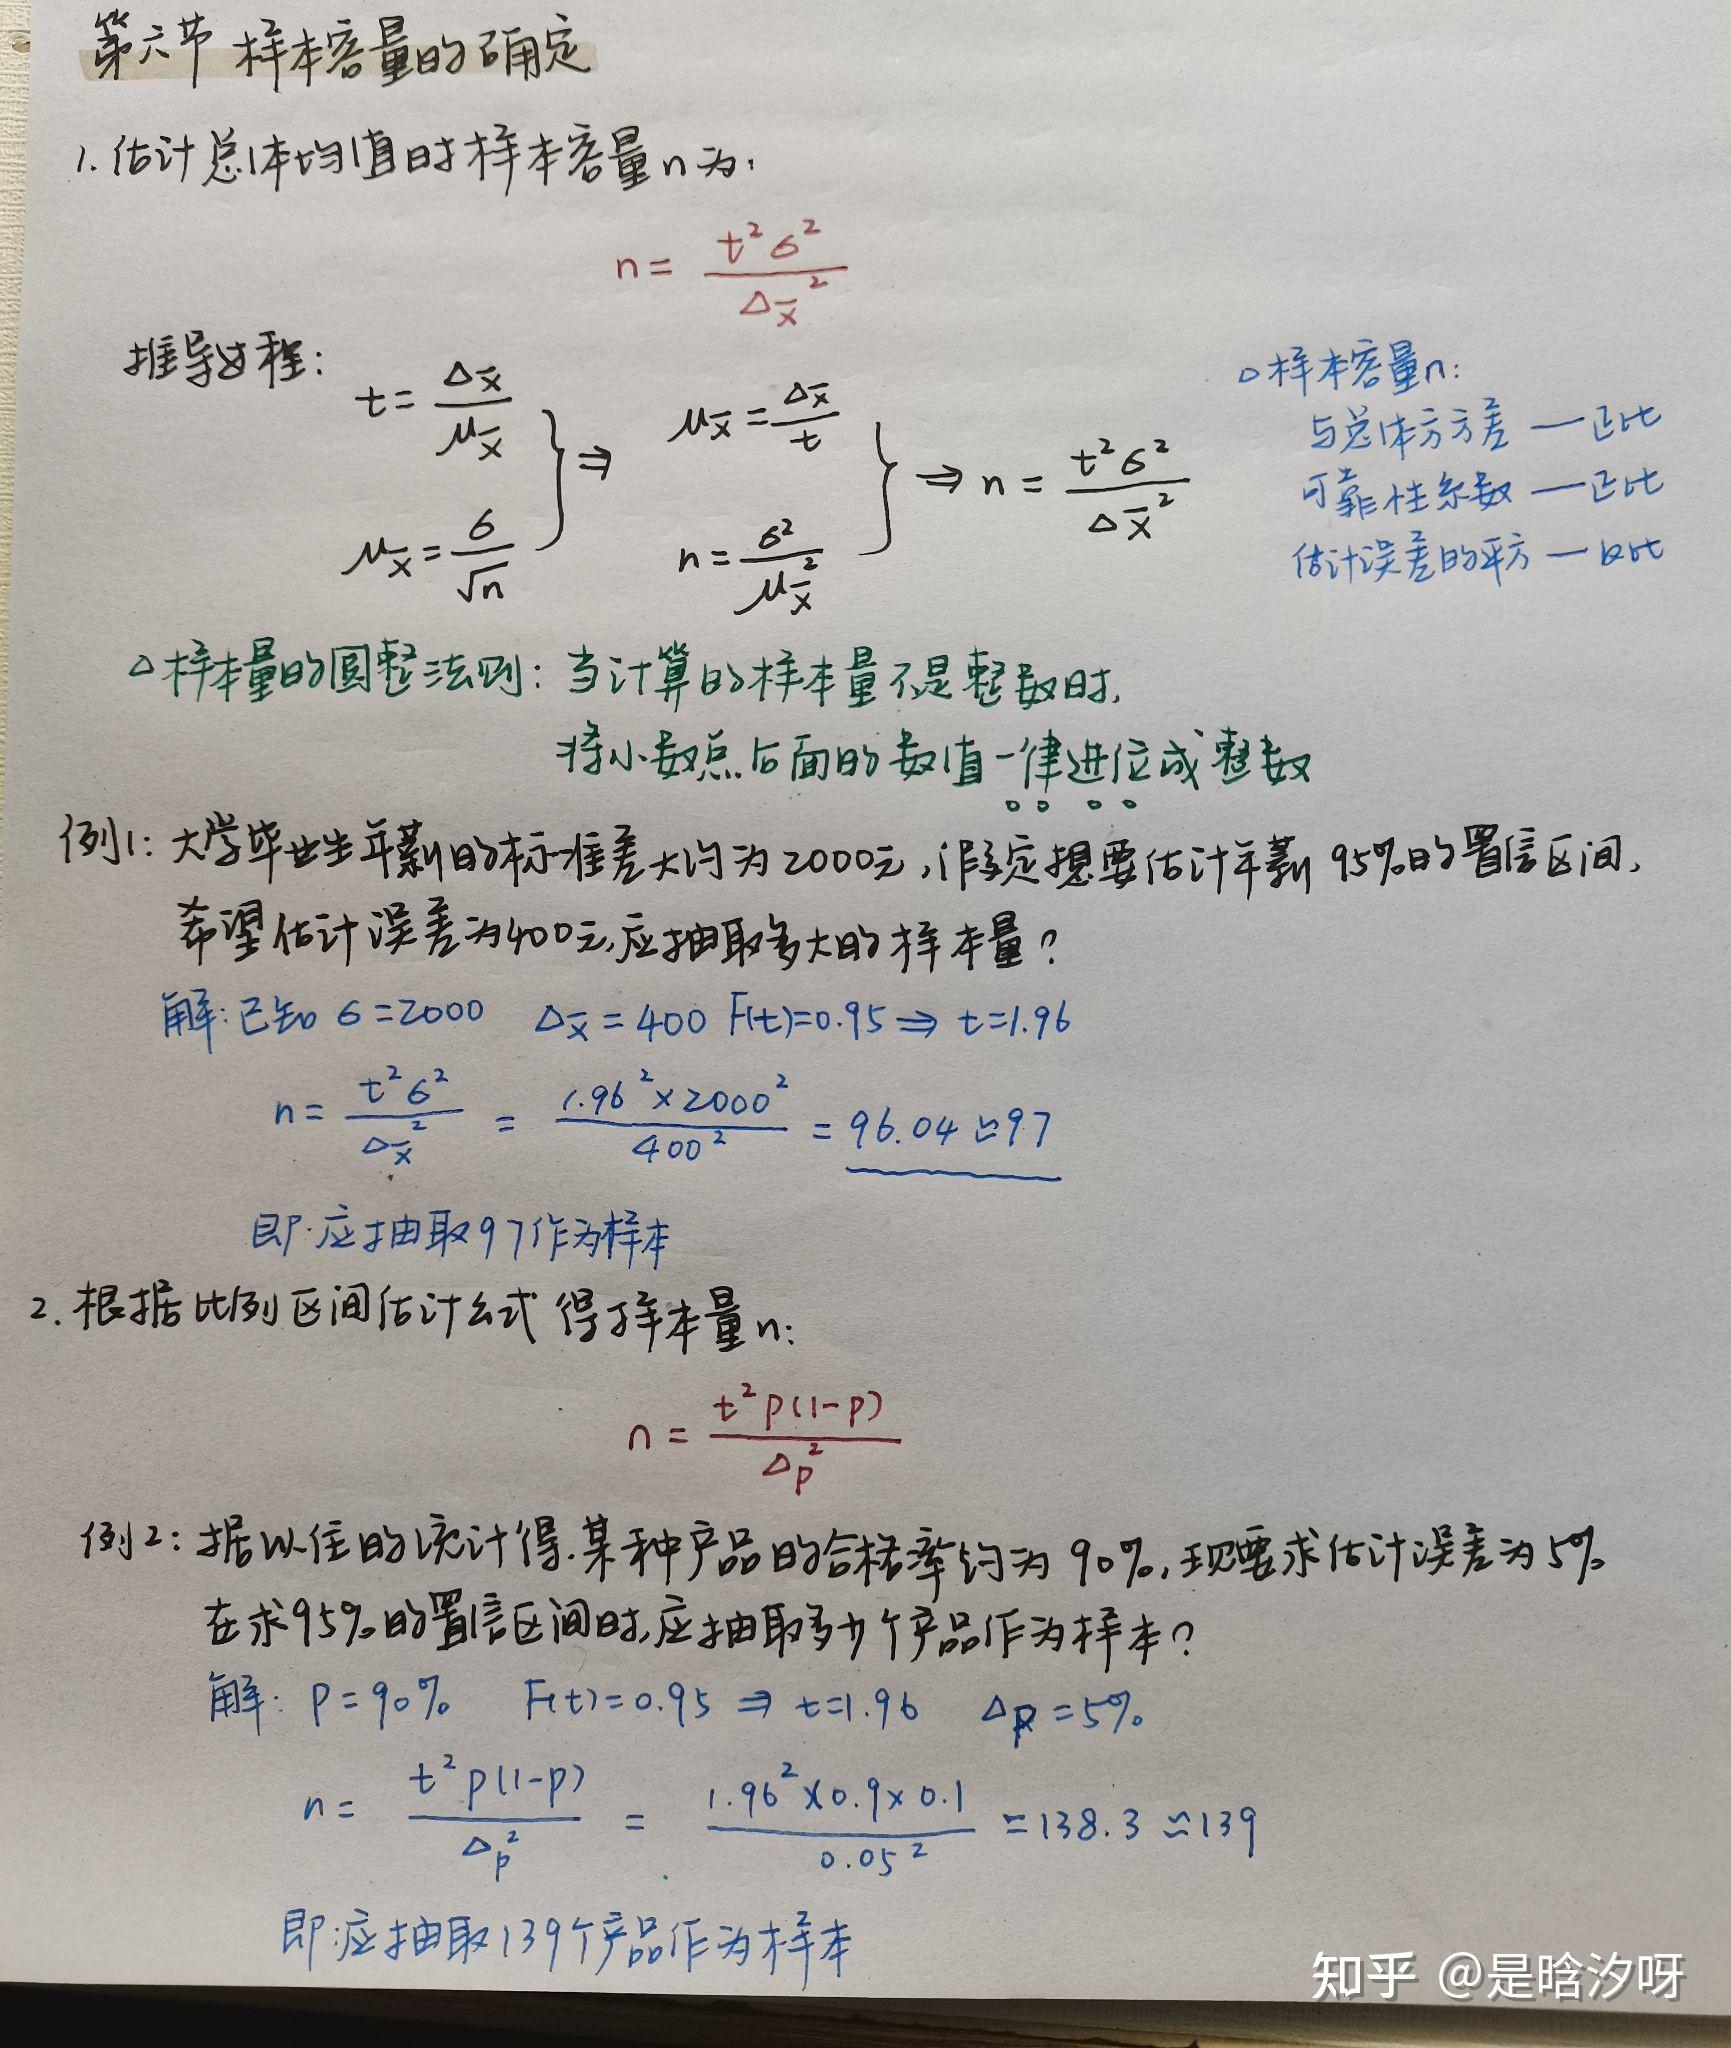 第六节 样本容量的确定
1. 估计总体均值时样本容量n为:
n = t²σ² / Δx̄²
推导过程:
t = Δx̄ / μx̄
μx̄ = σ / √n
} ⇒
μx̄ = Δx̄ / t
n = σ² / μx̄²
} ⇒ n = t²σ² / Δx̄²
△样本容量n:
与总体方方差 — 正比
可靠性系数 — 正比
估计误差的平方 — 反比
△样本量的圆整法则: 当计算的样本量不是整数时,
将小数点后面的数值一律进位成整数
例1: 大学毕业生年薪的标准差大约为2000元, 假定想要估计年薪95%的置信区间,
希望估计误差为400元, 应抽取多大的样本量?
解: 已知 σ=2000 Δx̄ = 400 F(t)=0.95 ⇒ t=1.96
n = t²σ² / Δx̄² = 1.96² × 2000² / 400² = 96.04 ≌ 97
即: 应抽取97作为样本
2. 根据比例区间估计公式 得样本量n:
n = t²p(1-p) / Δp²
例2: 据以往的统计得. 某种产品的合格率约为90%, 现要求估计误差为5%
在求95%的置信区间时, 应抽取多少个产品作为样本?
解: P=90% F(t)=0.95 ⇒ t=1.96 Δp=5%
n = t²p(1-p) / Δp² = 1.96² × 0.9 × 0.1 / 0.05² = 138.3 ≌ 139
即: 应抽取139个产品作为样本
知乎 @是晗汐呀